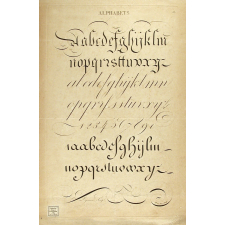 ALPHABETS
abcdefghijklm
nopqrsttuwxyz
abcdefghijklmn
opqrstuvxyz
aabcdefghijlm
nopqrstuvwxyz